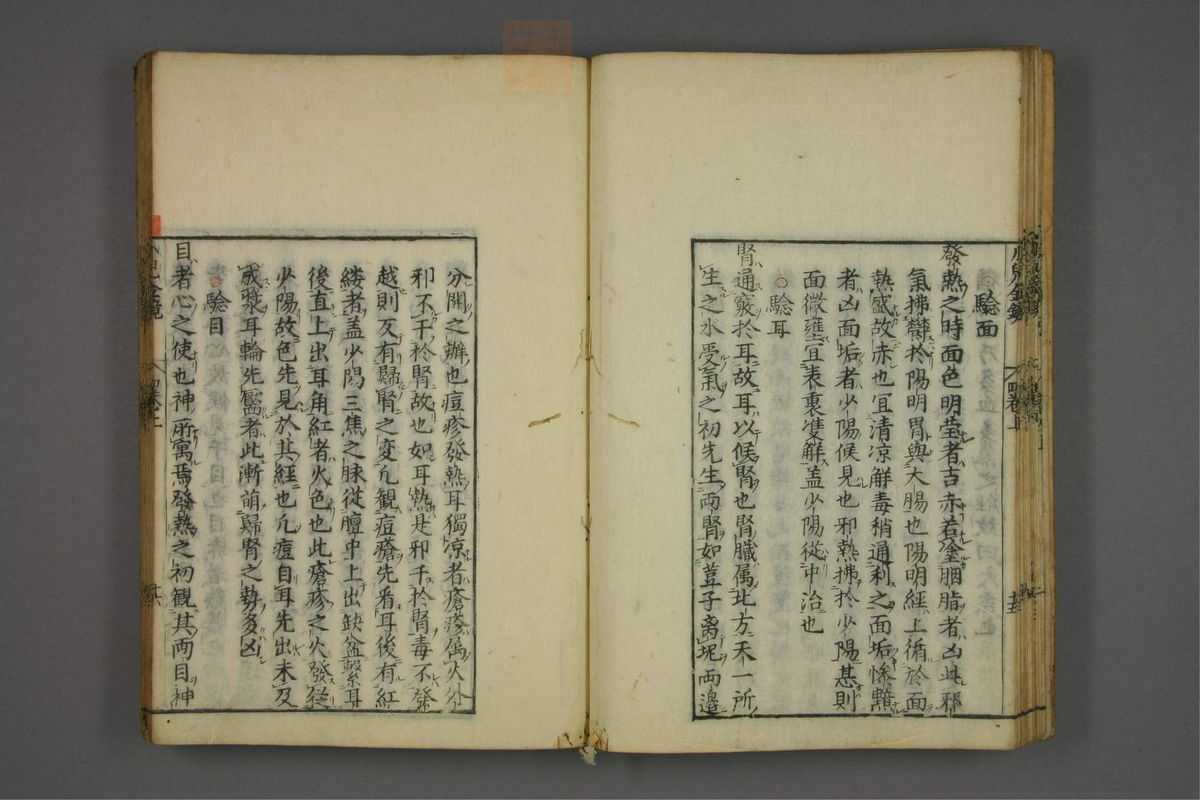 驗面
發熱之時面色明莹者吉赤若塗胭脂者凶此邪
氣拂欎於陽明胃與大腸也陽明經上循於面
熱盛故赤也宜清凉觧毒稍通利之面垢慘黯
者凶面垢者少陽候見也邪熱拂於少陽甚則
面微壅宜表裏雙觧盖少陽從中治也
○驗耳
腎通竅於耳故耳以候腎也腎臓属北方天一所
生之水受氣之初先生兩腎如荳子离坭兩邉
分開之辦也痘疹發熱耳獨凉者瘡疹属火外
邪不干於腎故也如耳熱是邪干於腎毒不發
越則又有歸腎之変凢觀痘瘡先看耳後有紅
縷者盖少陽三焦之脉從膻中上出缺盆繫耳
後直上出耳角紅者火色也此瘡疹之火發從
少陽故色先見於其經也凢痘自耳先出未及
成漿耳輪先靨者此漸萌歸腎之勢多凶
驗目
目者心之使也神所寓焉發熱之初觀其兩目神